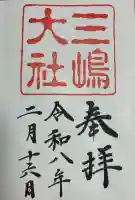 奉拝
三嶋
大社
令和八年
二月十六日